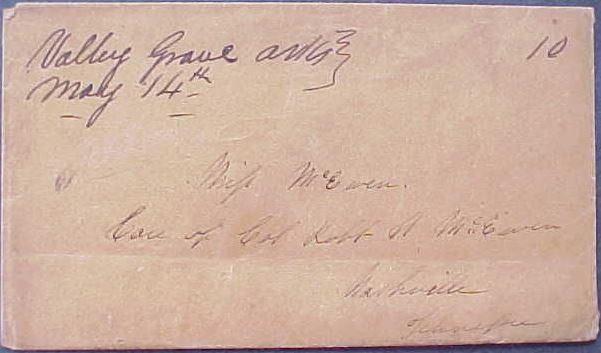 Valley Grove Arks 10
May 14th
Miss McEwen.
Care of Col Robt H. McEwen
Nashville
Tennessee